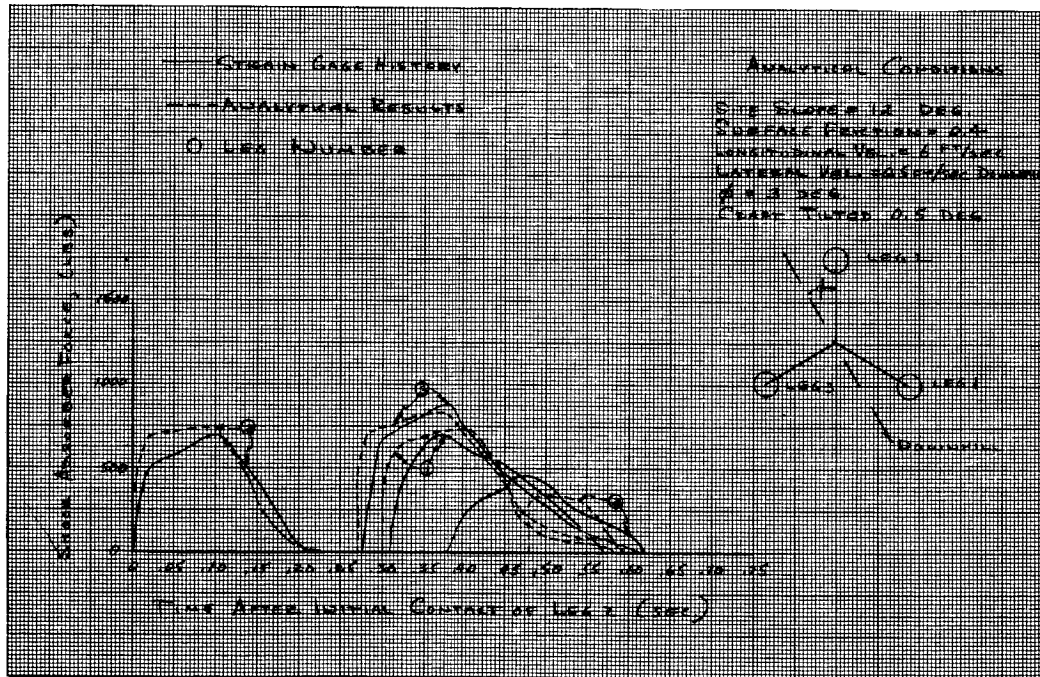 STRAIN GAGE HISTORY
ANALYTICAL RESULTS
LEG NUMBER
ANALYTICAL CONDITIONS
SITE SLOPE = 12 DEG.
SURFACE FRICTION = 0.4
LONGITUDINAL VEL. = 6 FT/SEC
LATERAL VEL. = 0.5 FT/SEC
= 3 DEG.
TILTED 0.5 DEG
SHOCK ABSORBER FORCE, (LBS)
1500
1000
500
0
LEG 2
LEG 3
LEG 1
DOWNHILL
0 .05 .10 .15 .20 .25 .30 .35 .40 .45 .50 .55 .60 .65 .70 .75
TIME AFTER INITIAL CONTACT OF LEG 2 (SEC)